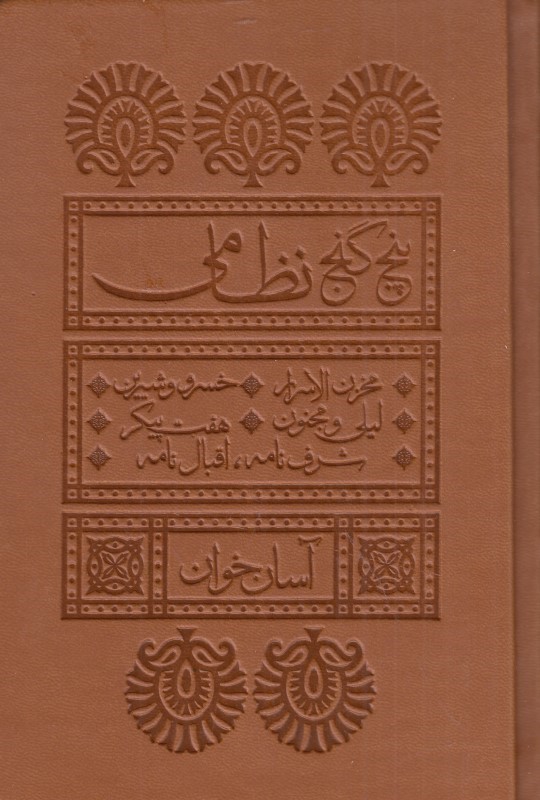 پنج گنج نظامی
مخزن الاسرار خسرو و شیرین
لیلی و مجنون هفت پیکر
شرف نامه، اقبال نامه
آسان خوان